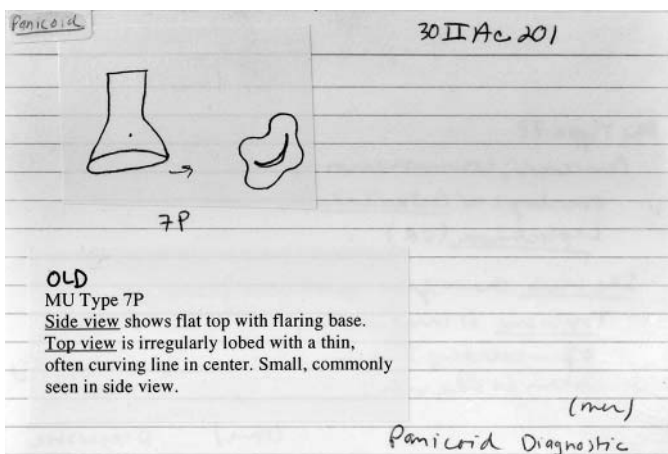 Panicoid
30 II Ac 201
7P
OLD
MU Type 7P
Side view shows flat top with flaring base.
Top view is irregularly lobed with a thin,
often curving line in center. Small, commonly
seen in side view.
Panicoid Diagnostic